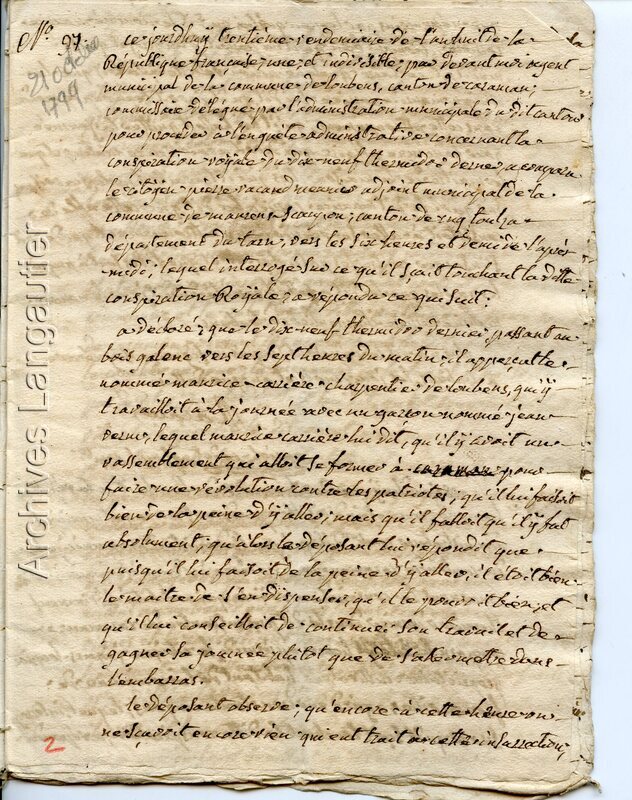 N.º 97.
21 octobre
1799
ce jourdhuy trentième vendemiaire de l'an huit de la
République française, une et indivisible, par devant moi agent
municipal de la commune de loubens, canton de caraman,
commissaire délégué par l'administration municipale du dit canton
pour proceder à l'enquête administrative concernant la
conspiration royale du dix neuf thermidor dernier, a comparu
le citoyen pierre meunier adjoint municipal de la
commune de maurens scaupon, canton de cuq toulza
département du tarn, vers les six heures et demi de l'après
midi; lequel interrogé sur ce qu'il sçait touchant la ditte
conspiration Royale, a répondu ce qui suit:
a déclaré, que le dix neuf thermidor dernier, passant au
bois galenc vers les sept heures du matin, il apperçut le
nommé maurice carrière charpentier de loubens, qui y
travailloit à la journée avec un garçon nommé jean
, lequel maurice carrière lui dit, qu'il y avoit un
rassemblement qui alloit se former à pour
faire une révolution contre les patriotes, qu'il lui faisoit
bien de la peine d'y aller, mais qu'il falloit qu'il y fut
absolument, qu'alors le déposant lui répondit que
puisqu'il lui faisoit de la peine d'y aller, il étoit bien
le maitre de s'en dispenser, qu'il le pouvoit bien, et
qu'il lui conseilloit de continuer son travail et de
gagner sa journée plutôt que de s'aler metre dans
l'embarras.
le déposant observe, qu'encore à cette heure on
ne sçavoit encore rien qui eut trait à cette insurrection,
2
Archives Langautier